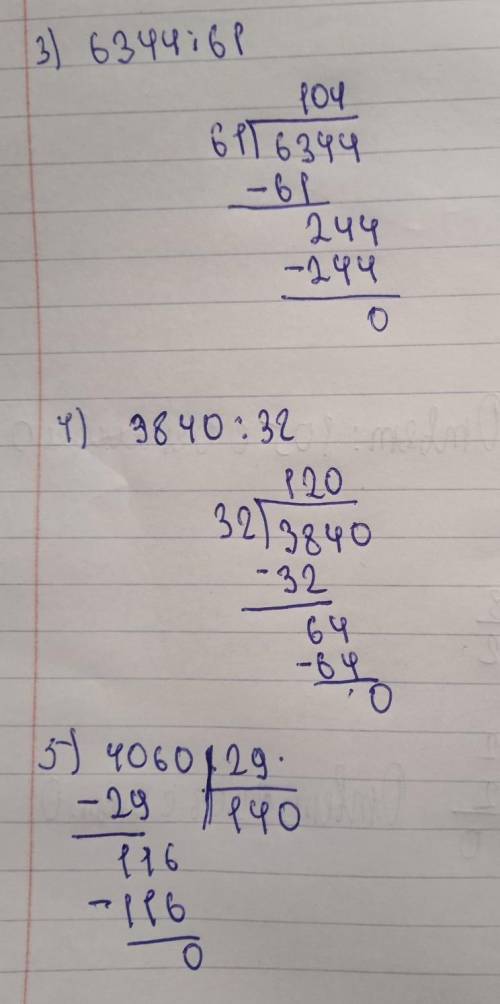 3) 6344:61
104
61)6344
-61
244
-244
0
4) 3840:32
120
32)3840
-32
64
-64
0
5) 4060|29
-29 |140
116
-116
0